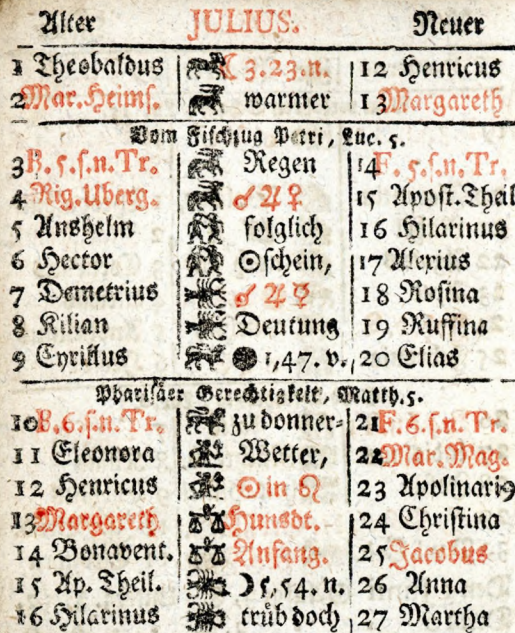 Alter JULIUS. Neuer
1 Theobaldus ☾ 3.23.n. 12 Henricus
2 Mar.Heims. warmer 13 Margareth
Vom Fischzug Petri, Luc. 5.
3 B.5.s.n.Tr. Regen 14 F.5.s.n.Tr.
4 Rig.Uberg. ☌ ♃ ♀ 15 Apost.Theil
5 Anshelm folglich 16 Hilarinus
6 Hector ☉schein, 17 Alexius
7 Demetrius ☌ ♃ ☿ 18 Rosina
8 Kilian Deutung 19 Ruffina
9 Cyrillus ● 1,47. v. 20 Elias
Pharisäer Gerechtigkeit, Matth. 5.
10 B.6.s.n.Tr. zu donner- 21 F.6.s.n.Tr.
11 Eleonora Wetter, 22 Mar.Mag.
12 Henricus ☉ in ♌ 23 Apolinari9
13 Margareth Hunsdt. 24 Christina
14 Bonavent. Anfang. 25 Jacobus
15 Ap. Theil. ☽ 5,54. n. 26 Anna
16 Hilarinus trüb doch 27 Martha